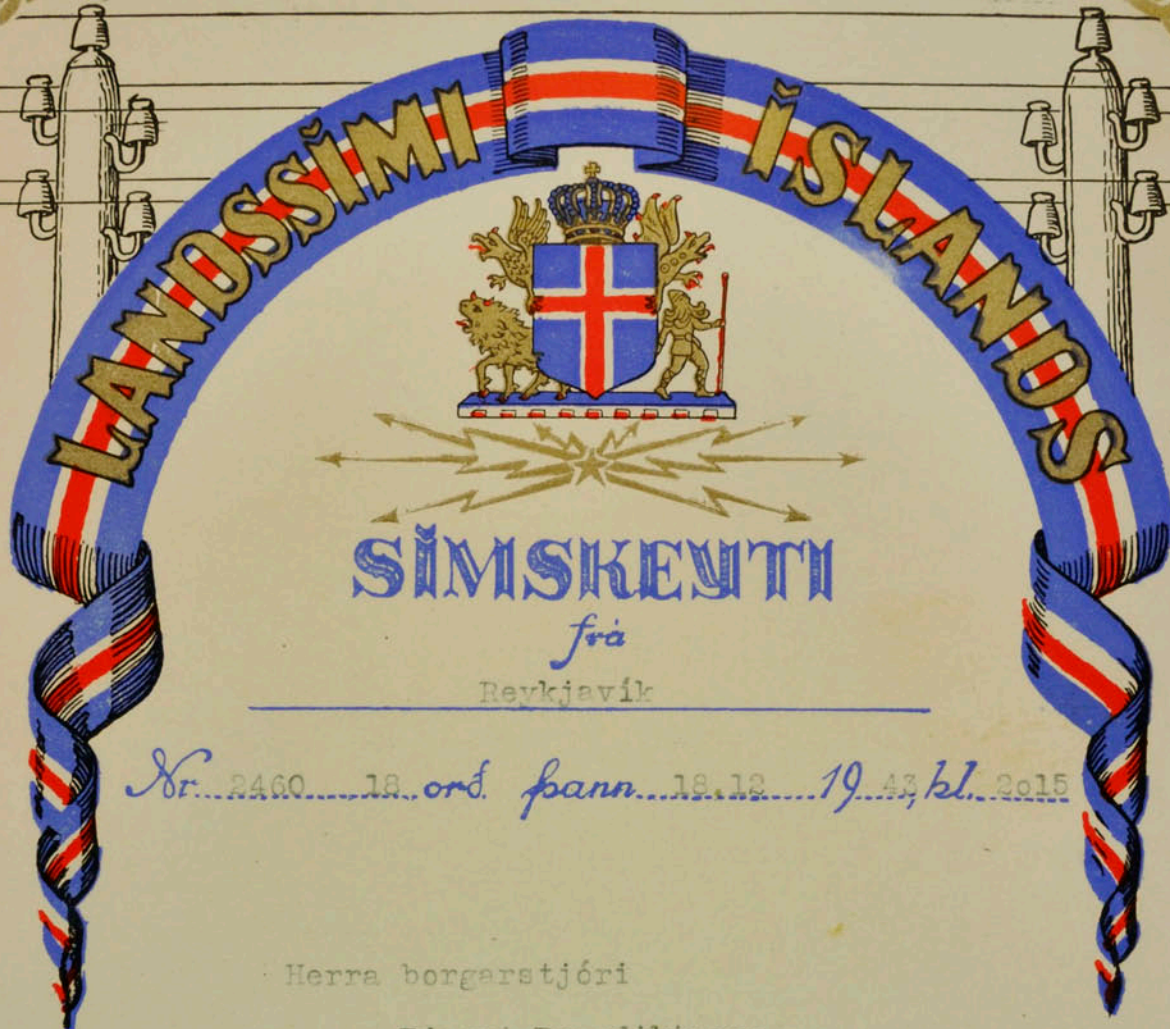 LANDSSÍMI ÍSLANDS
SÍMSKEYTI
frá
Reykjavík
Nr. 2460 18 orð þann 18.12 19 43, kl. 2o15
Herra borgarstjóri